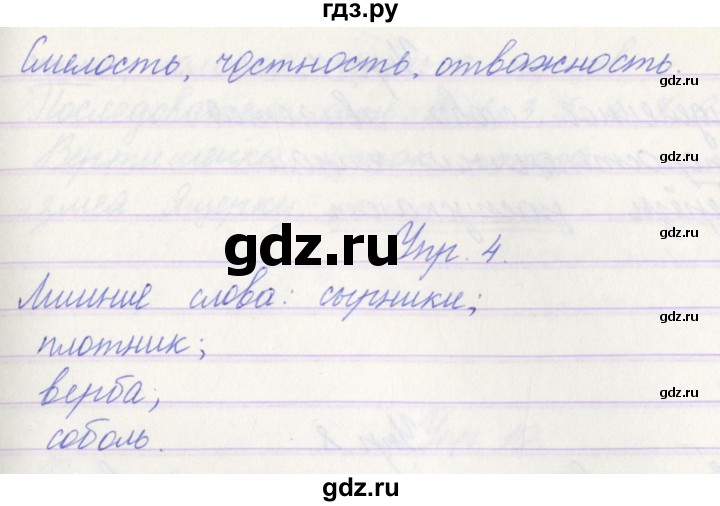 гдз.ру
Смелость, честность, отважность.
gdz.ru
gdz.ru
gdz.ru
gdz.ru
Упр. 4.
Лишние слова: сырники;
gdz.ru
плотник;
верба;
gdz.ru
соболь.
gdz.ru